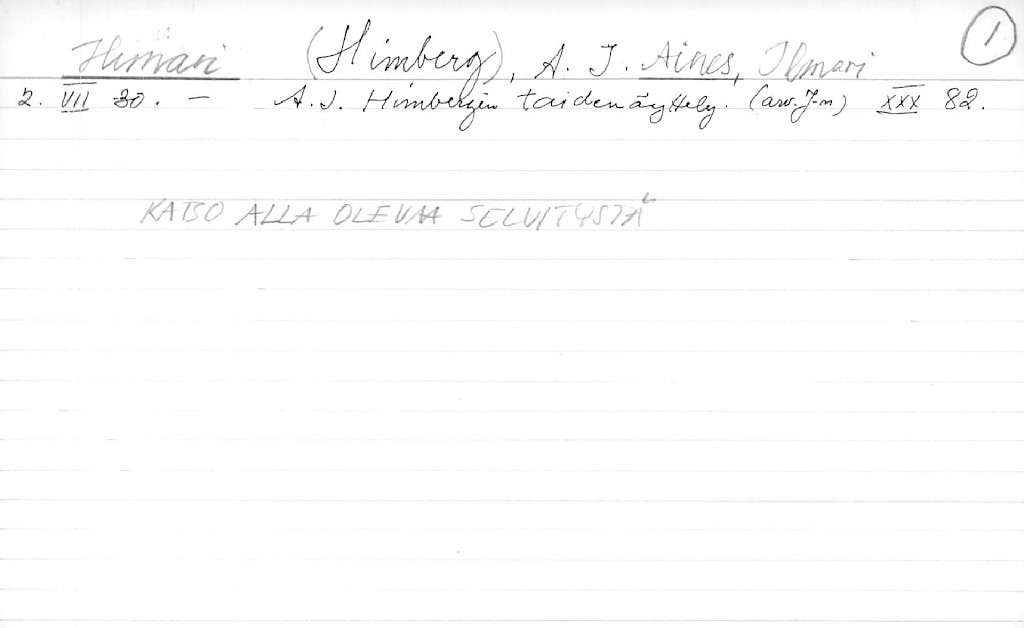 Ilmari (Himberg), A. J. Aines, Ilmari 1
2. VII 30. - A. J. Himbergin taidenäyttely. (arv. J-n) XXX 82.
KATSO ALLA OLEVAA SELVITYSTÄ